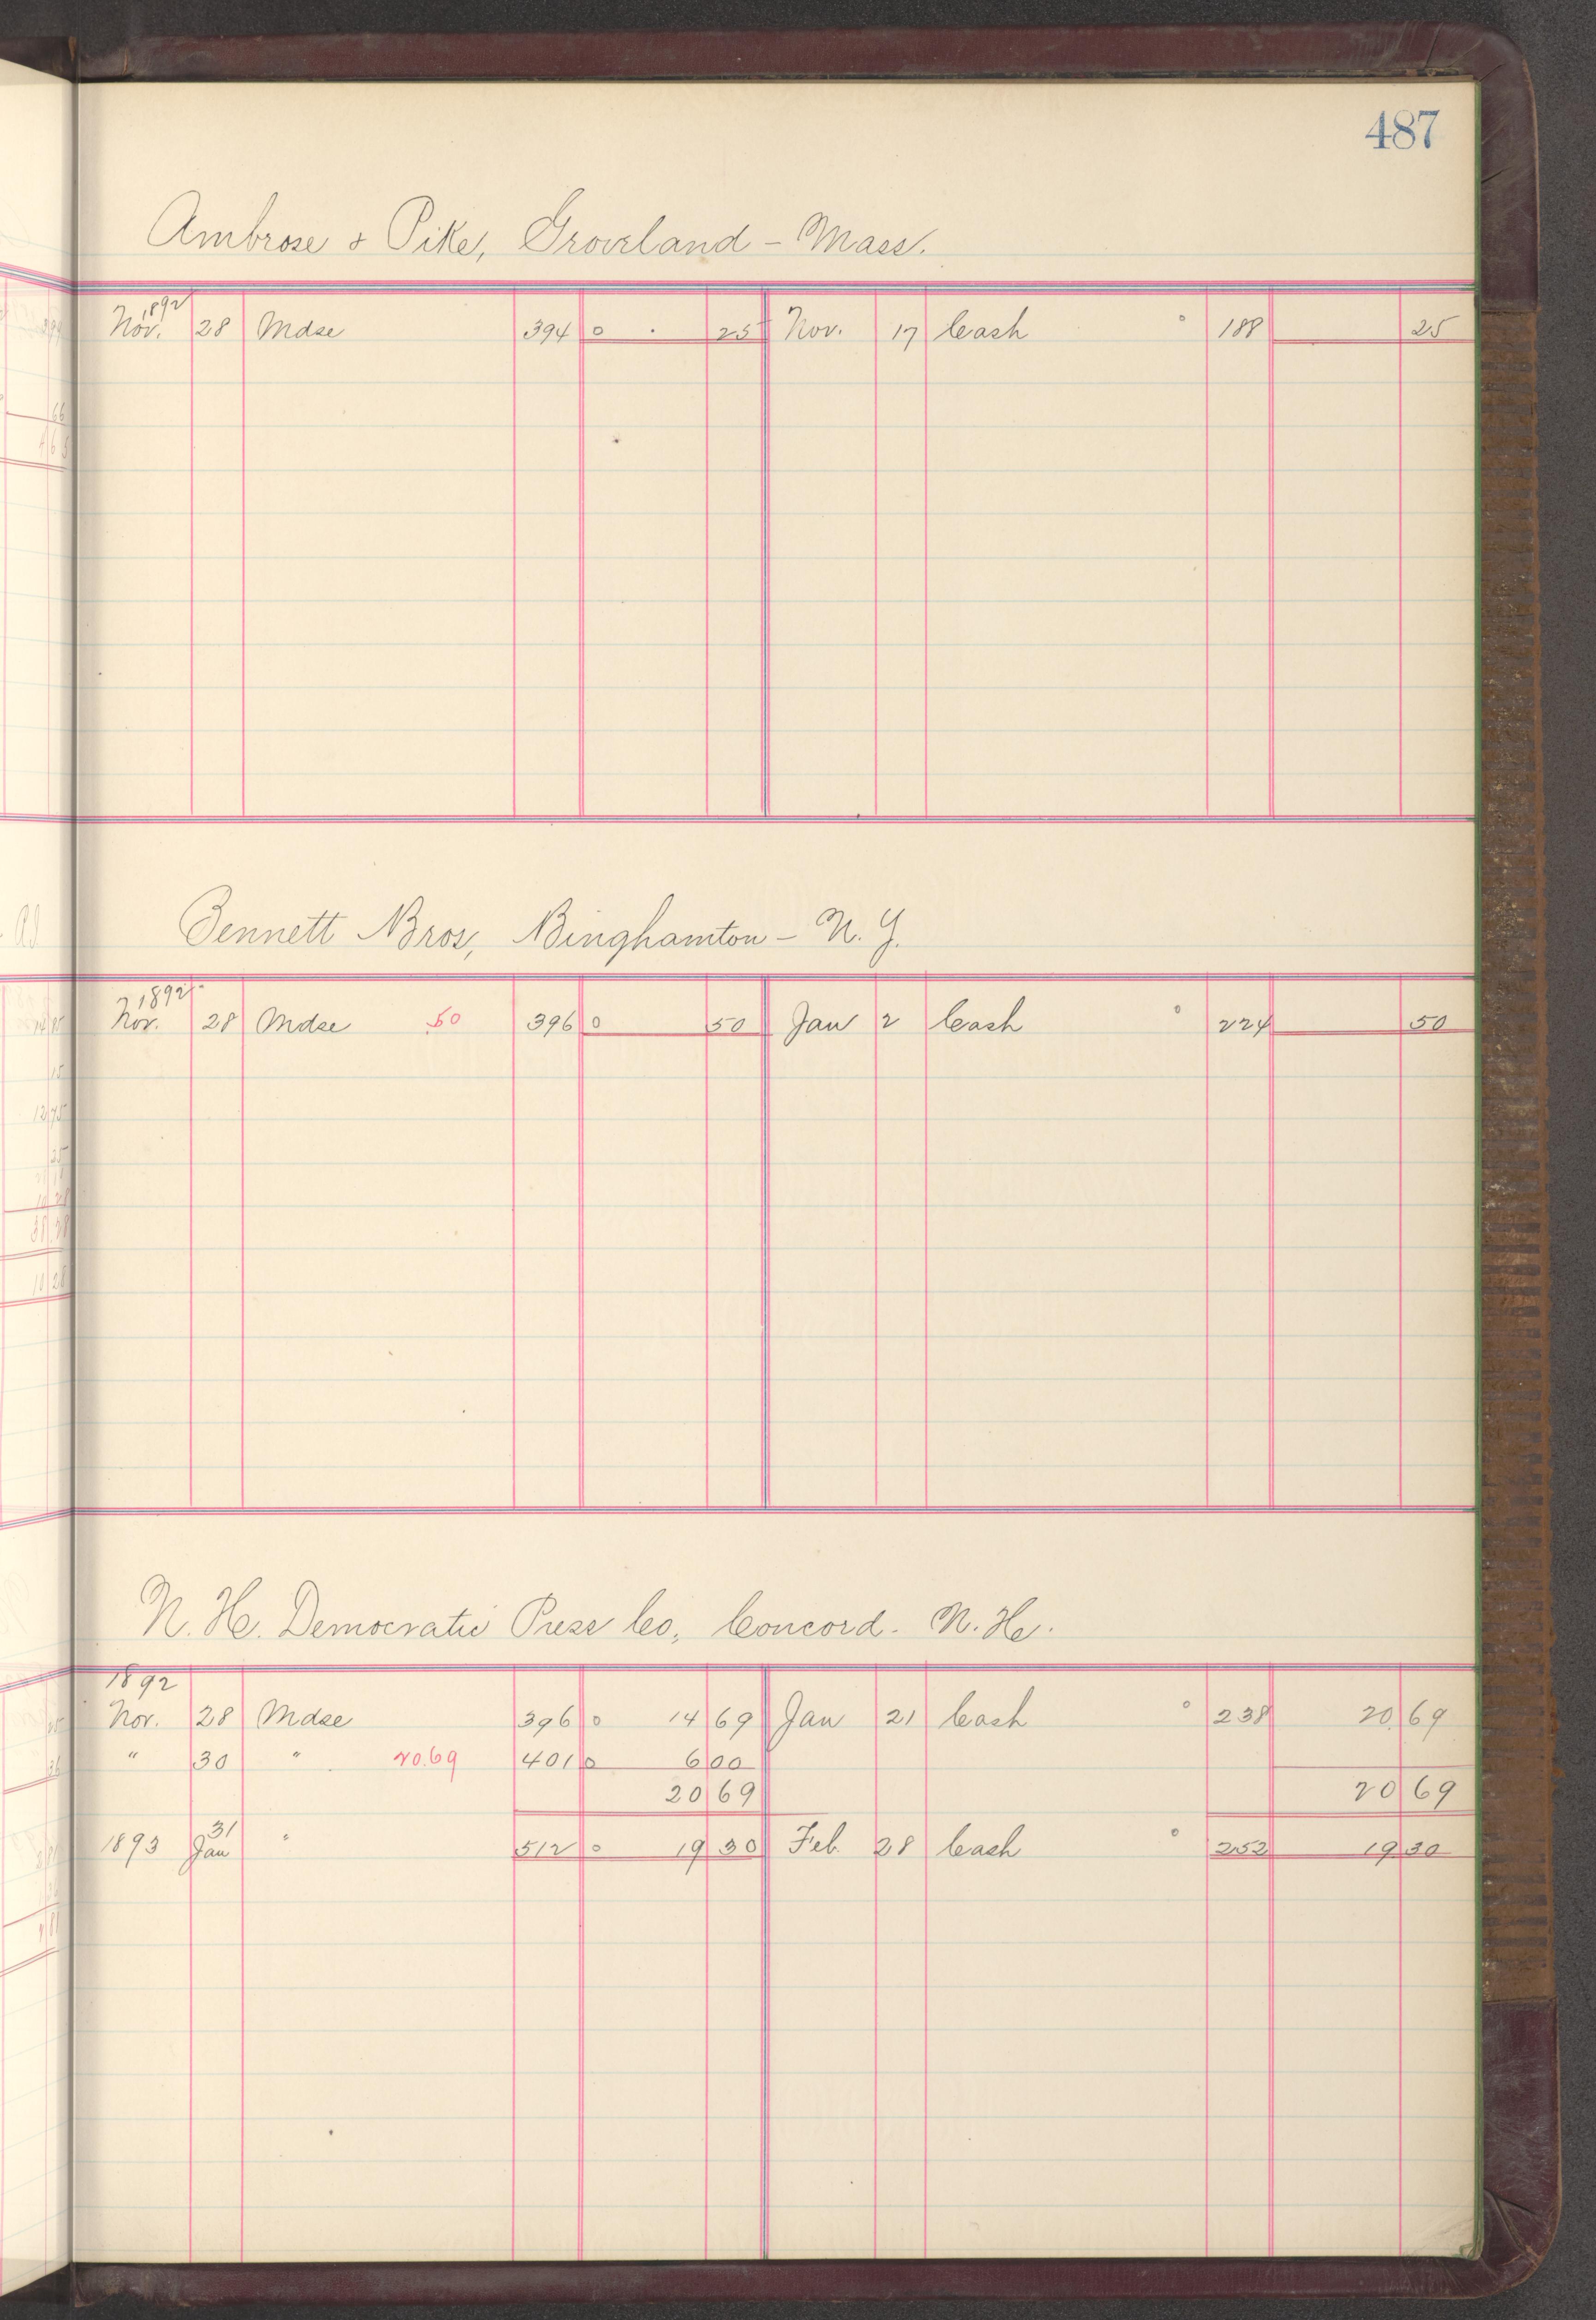 487
Ambrose & Pike, Groveland - Mass.
1892
Nov. 28 Mdse 394 0 25 Nov. 17 Cash 188 25
Bennett Bros, Binghamton - N. Y.
1892
Nov. 28 Mdse 50 396 0 50 Jan 2 Cash 224 50
N. H. Democratic Press Co, Concord. N. H.
1892
Nov. 28 Mdse 396 0 14 69 Jan 21 Cash 238 20 69
" 30 " 20.69 401 0 6 00
20 69 20 69
1893 Jan 31 " 512 0 19 30 Feb 28 Cash 252 19 30